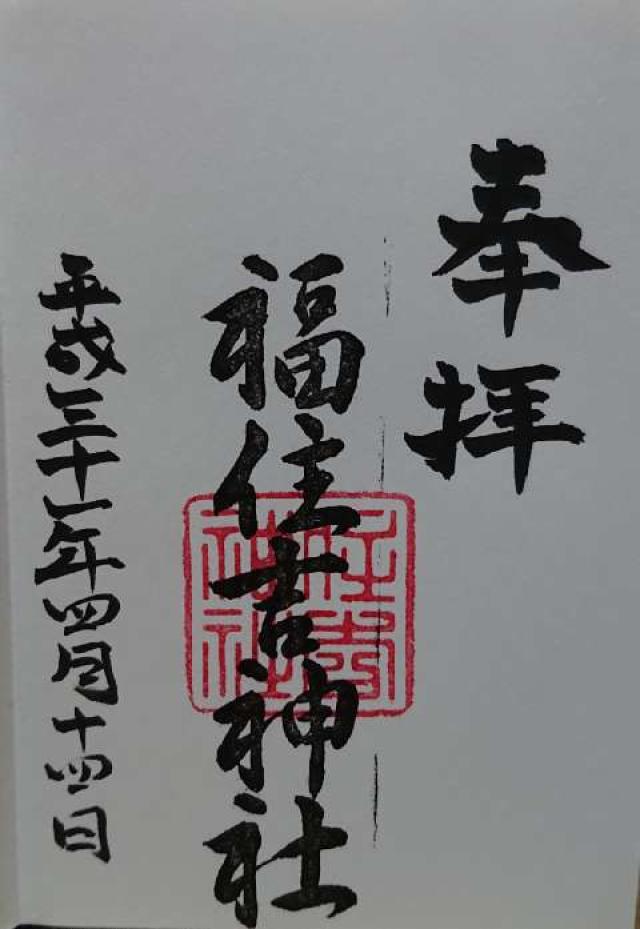 奉拝
福住吉神社
平成三十一年四月十四日
住吉神社